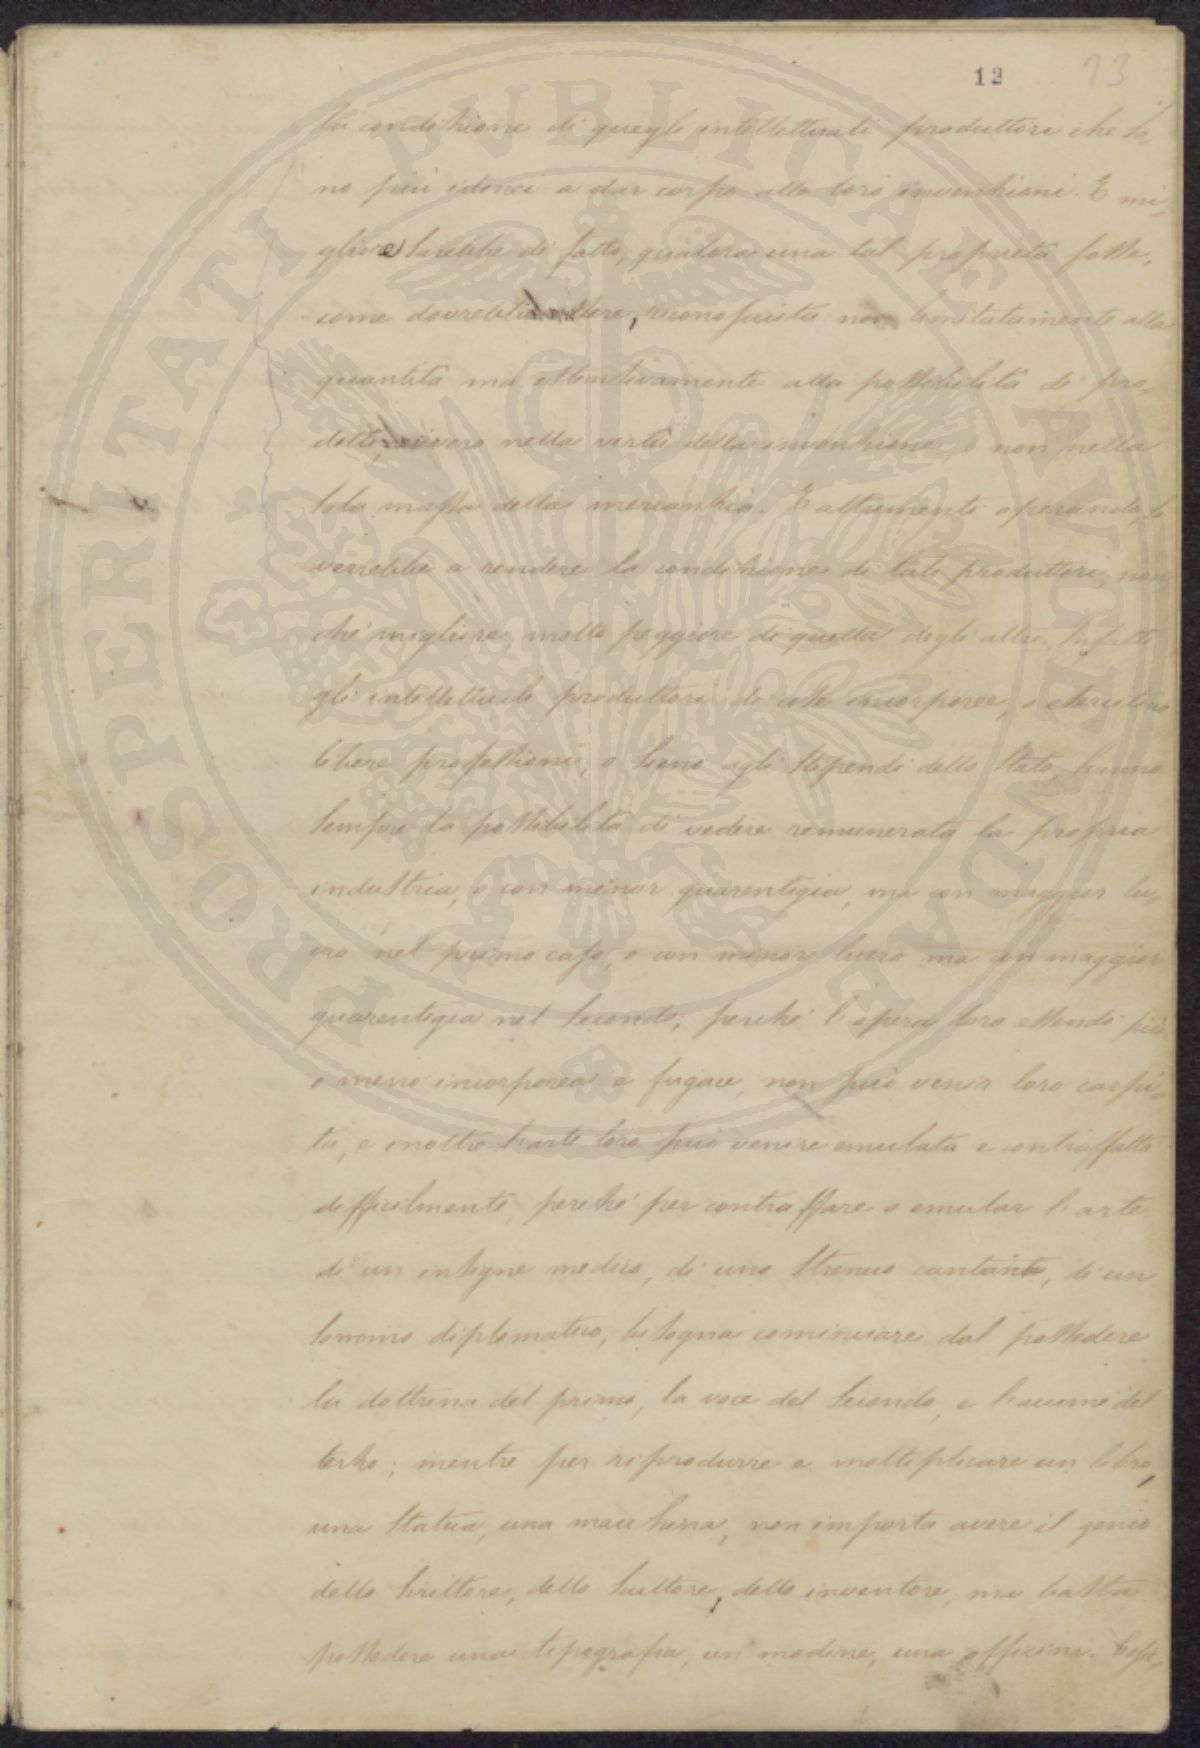 13 13
la condizione di quegli intellettuali produttori che so-
no più idonei a dar corpo alle loro invenzioni. E mi-
gliore sarebbe di fatto, qualora una tal proprietà fosse,
come dovrebbe essere, riconosciuta non limitatamente alla
quantità ma estensivamente alla possibilità di pro-
dotto, ovvero nella virtù della invenzione, e non nella
sola massa della mercanzia. E altrimenti operando, si
verrebbe a rendere la condizione di tali produttori, non
ché migliore, molto peggiore di quella degli altri. Infatti
gli intellettuali produttori di cose incorporee, o esercitino
libere professioni, o sieno agli stipendi dello Stato, hanno
sempre la possibilità di vedere remunerata la propria
industria, o con minor guarentigia, ma con maggior lu-
cro nel primo caso, o con minore lucro ma con maggior
guarentigia nel secondo; perché l'opera loro essendo più
o meno incorporea e fugace, non può venir loro carpi-
ta, e inoltre l'arte loro può venire emulata e contraffatta
difficilmente, perché per contraffare o emular l'arte
di un insigne medico, di uno strenuo cantante, di un
sommo diplomatico, bisogna cominciare dal possedere
la dottrina del primo, la voce del secondo, e l'acume del
terzo; mentre per riprodurre e moltiplicare un libro,
una statua, una macchina, non importa avere il genio
dello scrittore, dello scultore, dello inventore, ma basta
possedere una tipografia, un modine, una officina.
PROSPERITATI PVBLICAE AVGENDAE